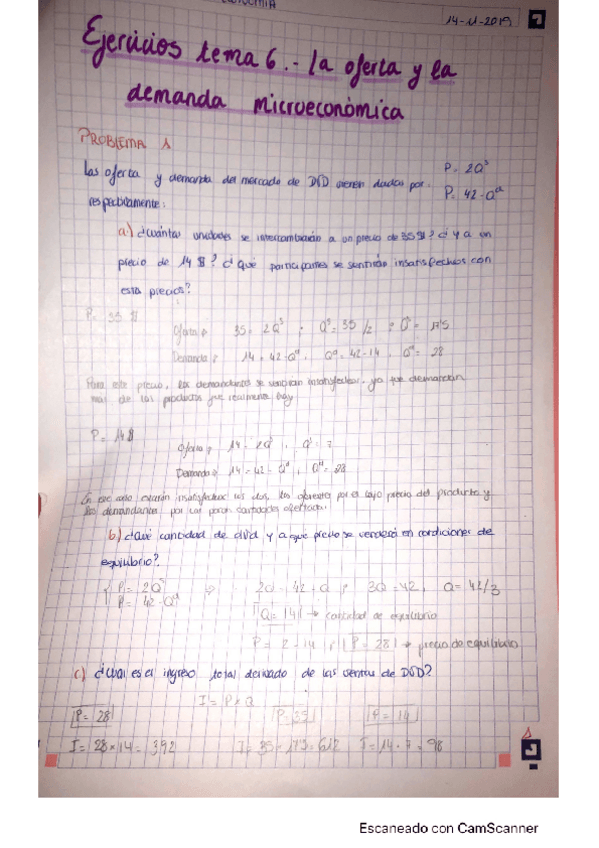 14-11-2019
Ejercicios tema 6.- La oferta y la
demanda microeconómica
PROBLEMA 1
Las oferta y demanda del mercado de DVD vienen dadas por: P = 2Qˢ
respectivamente: P = 42 - Qᵈ
a) ¿cuántas unidades se intercambiarán a un precio de 35$? ¿y a un
precio de 14$? ¿Qué participantes se sentirán insatisfechos con
esta precios?
P = 35 $
Oferta: 35 = 2Qˢ ; Qˢ = 35/2 ; Qˢ = 17'5
Demanda: 14 = 42 - Qᵈ, Qᵈ = 42 - 14, Qᵈ = 28
Para este precio, los demandantes se sentirían insatisfechos, ya que demandan
más de los productos que realmente hay
P = 14$
Oferta: 14 = 2Qˢ, Qˢ = 7
Demanda: 14 = 42 - Qᵈ, Qᵈ = 28
En ese caso estarán insatisfechos los dos, los por el bajo precio del producto y
los demandantes por las pocas cantidades
b) ¿Qué cantidad de dvd y a que precio se venderá en condiciones de
equilibrio?
P = 2Qˢ ⇒ 2Q = 42 - Q ; 3Q = 42, Q = 42/3
P = 42 - Qᵈ Q = 14 → cantidad de equilibrio
P = 2 · 14 ; P = 28 → precio de equilibrio
c) ¿Cual es el ingreso total derivado de las ventas de DVD?
I = P × Q
P = 28 P = 35 P = 14
I = 28 × 14 = 392 I = 35 · 17'5 = 612 I = 14 · 7 = 98
1
Escaneado con CamScanner